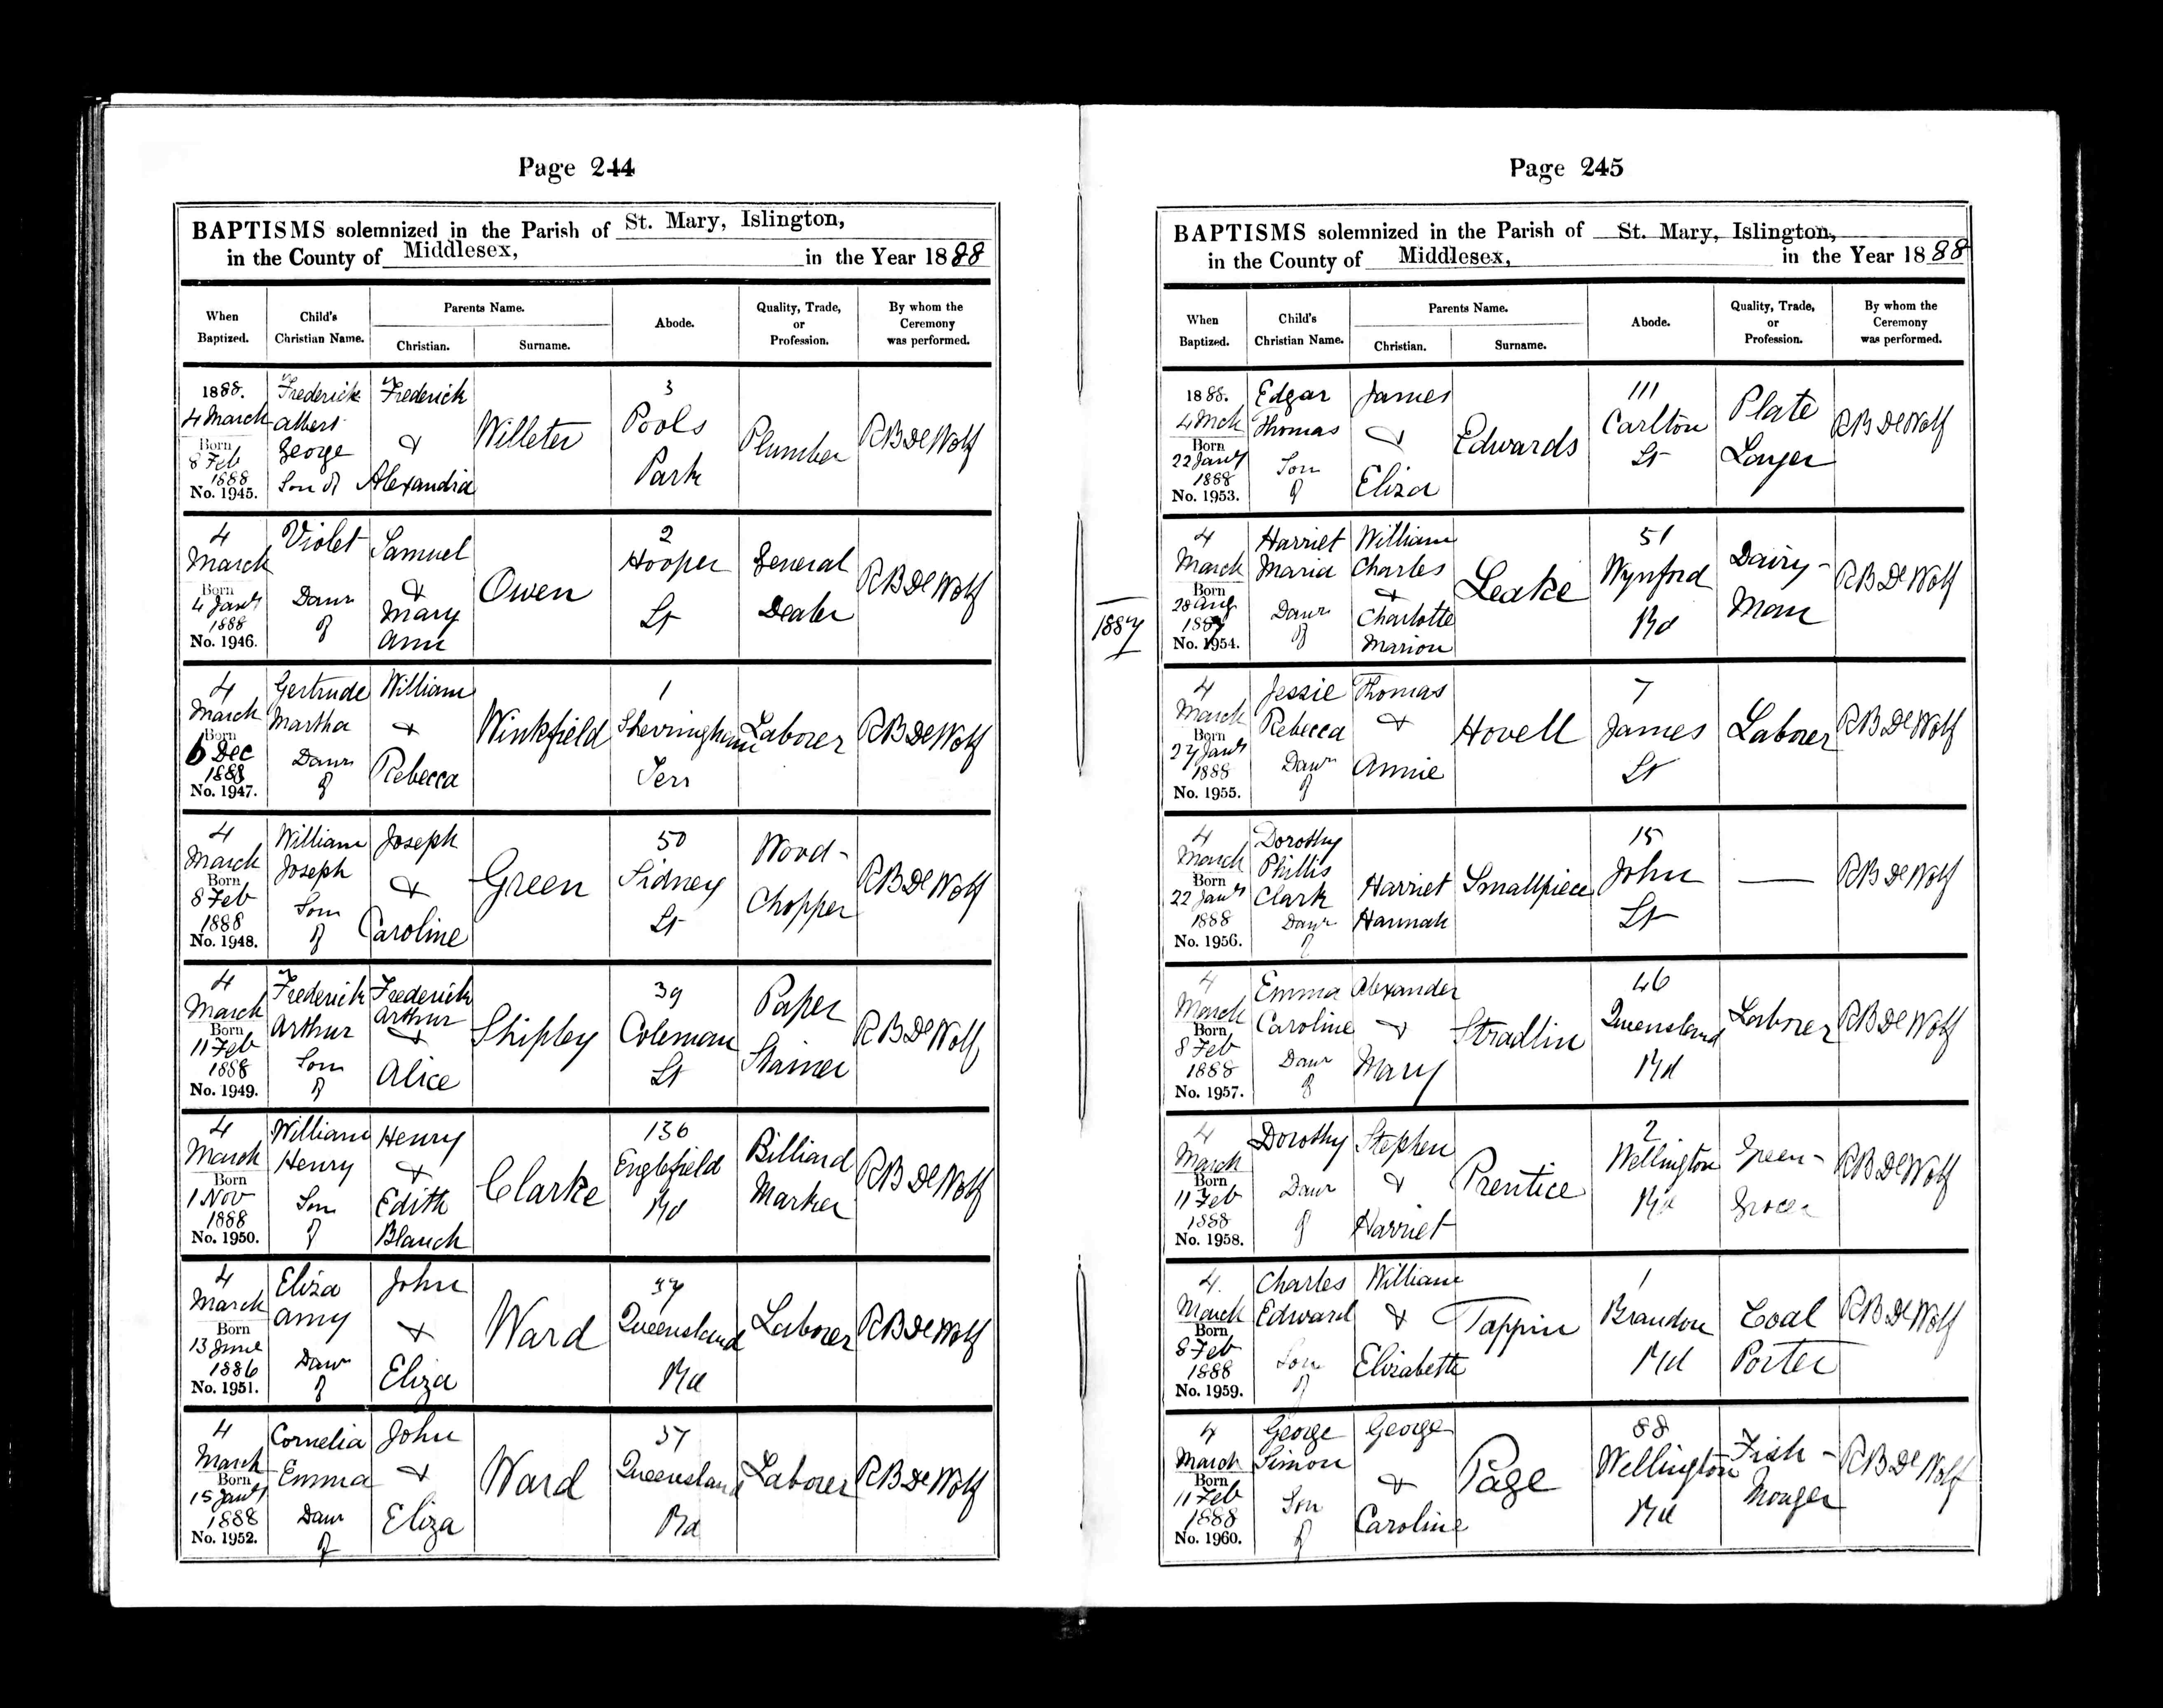 Page 244
BAPTISMS solemnized in the Parish of St. Mary, Islington,
in the County of Middlesex, in the Year 1888
When Baptized. Child's Christian Name. Parents Name. Christian. Surname. Abode. Quality, Trade, or Profession. By whom the Ceremony was performed.
1888. 4 March Born 8 Feb 1888 No. 1945. Frederick Albert George Son of Frederick & Alexandria Willeter 3 Pools Park Plumber RB De Wolf
4 March Born 4 Jany 1888 No. 1946. Violet Daur of Samuel & Mary Ann Owen 2 Hooper St General Dealer RB De Wolf
4 March Born 6 Dec 1888 No. 1947. Gertrude Martha Daur of William & Rebecca Winkfield 1 Sherringham Terr Laborer RB De Wolf
4 March Born 8 Feb 1888 No. 1948. William Joseph Son of Joseph & Caroline Green 50 Sidney St Wood-Chopper RB De Wolf
4 March Born 11 Feb 1888 No. 1949. Frederick Arthur Son of Frederick Arthur & Alice Shipley 39 Coleman St Paper Stainer RB De Wolf
4 March Born 1 Nov 1888 No. 1950. William Henry Son of Henry & Edith Blanch Clarke 136 Englefield Rd Billiard Marker RB De Wolf
4 March Born 13 June 1886 No. 1951. Eliza Amy Daur of John & Eliza Ward 37 Queensland Rd Laborer RB De Wolf
4 March Born 15 Jany 1888 No. 1952. Cornelia Emma Daur of John & Eliza Ward 37 Queensland Rd Laborer RB De Wolf
Page 245
BAPTISMS solemnized in the Parish of St. Mary, Islington,
in the County of Middlesex, in the Year 1888
When Baptized. Child's Christian Name. Parents Name. Christian. Surname. Abode. Quality, Trade, or Profession. By whom the Ceremony was performed.
1888. 4 Mch Born 22 Jany 1888 No. 1953. Edgar Thomas Son of James & Eliza Edwards 111 Carlton St Plate Layer RB De Wolf
1887
4 March Born 28 Aug 1887 No. 1954. Harriet Maria Daur of William Charles & Charlotte Marion Leake 51 Wynford Rd Dairy-Man RB De Wolf
4 March Born 27 Jany 1888 No. 1955. Jessie Rebecca Daur of Thomas & Annie Hovell 7 James St Laborer RB De Wolf
4 March Born 22 Jany 1888 No. 1956. Dorothy Phillis Clark Daur of Harriet Hannah Smallpiece 15 John St — RB De Wolf
4 March Born 8 Feb 1888 No. 1957. Emma Caroline Daur of Alexander & Mary Stradlin 46 Queensland Rd Laborer RB De Wolf
4 March Born 11 Feb 1888 No. 1958. Dorothy Daur of Stephen & Harriet Prentice 2 Wellington Rd Green-Grocer RB De Wolf
4. March Born 8 Feb 1888 No. 1959. Charles Edward Son of William & Elizabeth Tappin 1 Brandon Rd Coal Porter RB De Wolf
4 March Born 11 Feb 1888 No. 1960. George Simon Son of George & Caroline Page 88 Wellington Rd Fish-Monger RB De Wolf